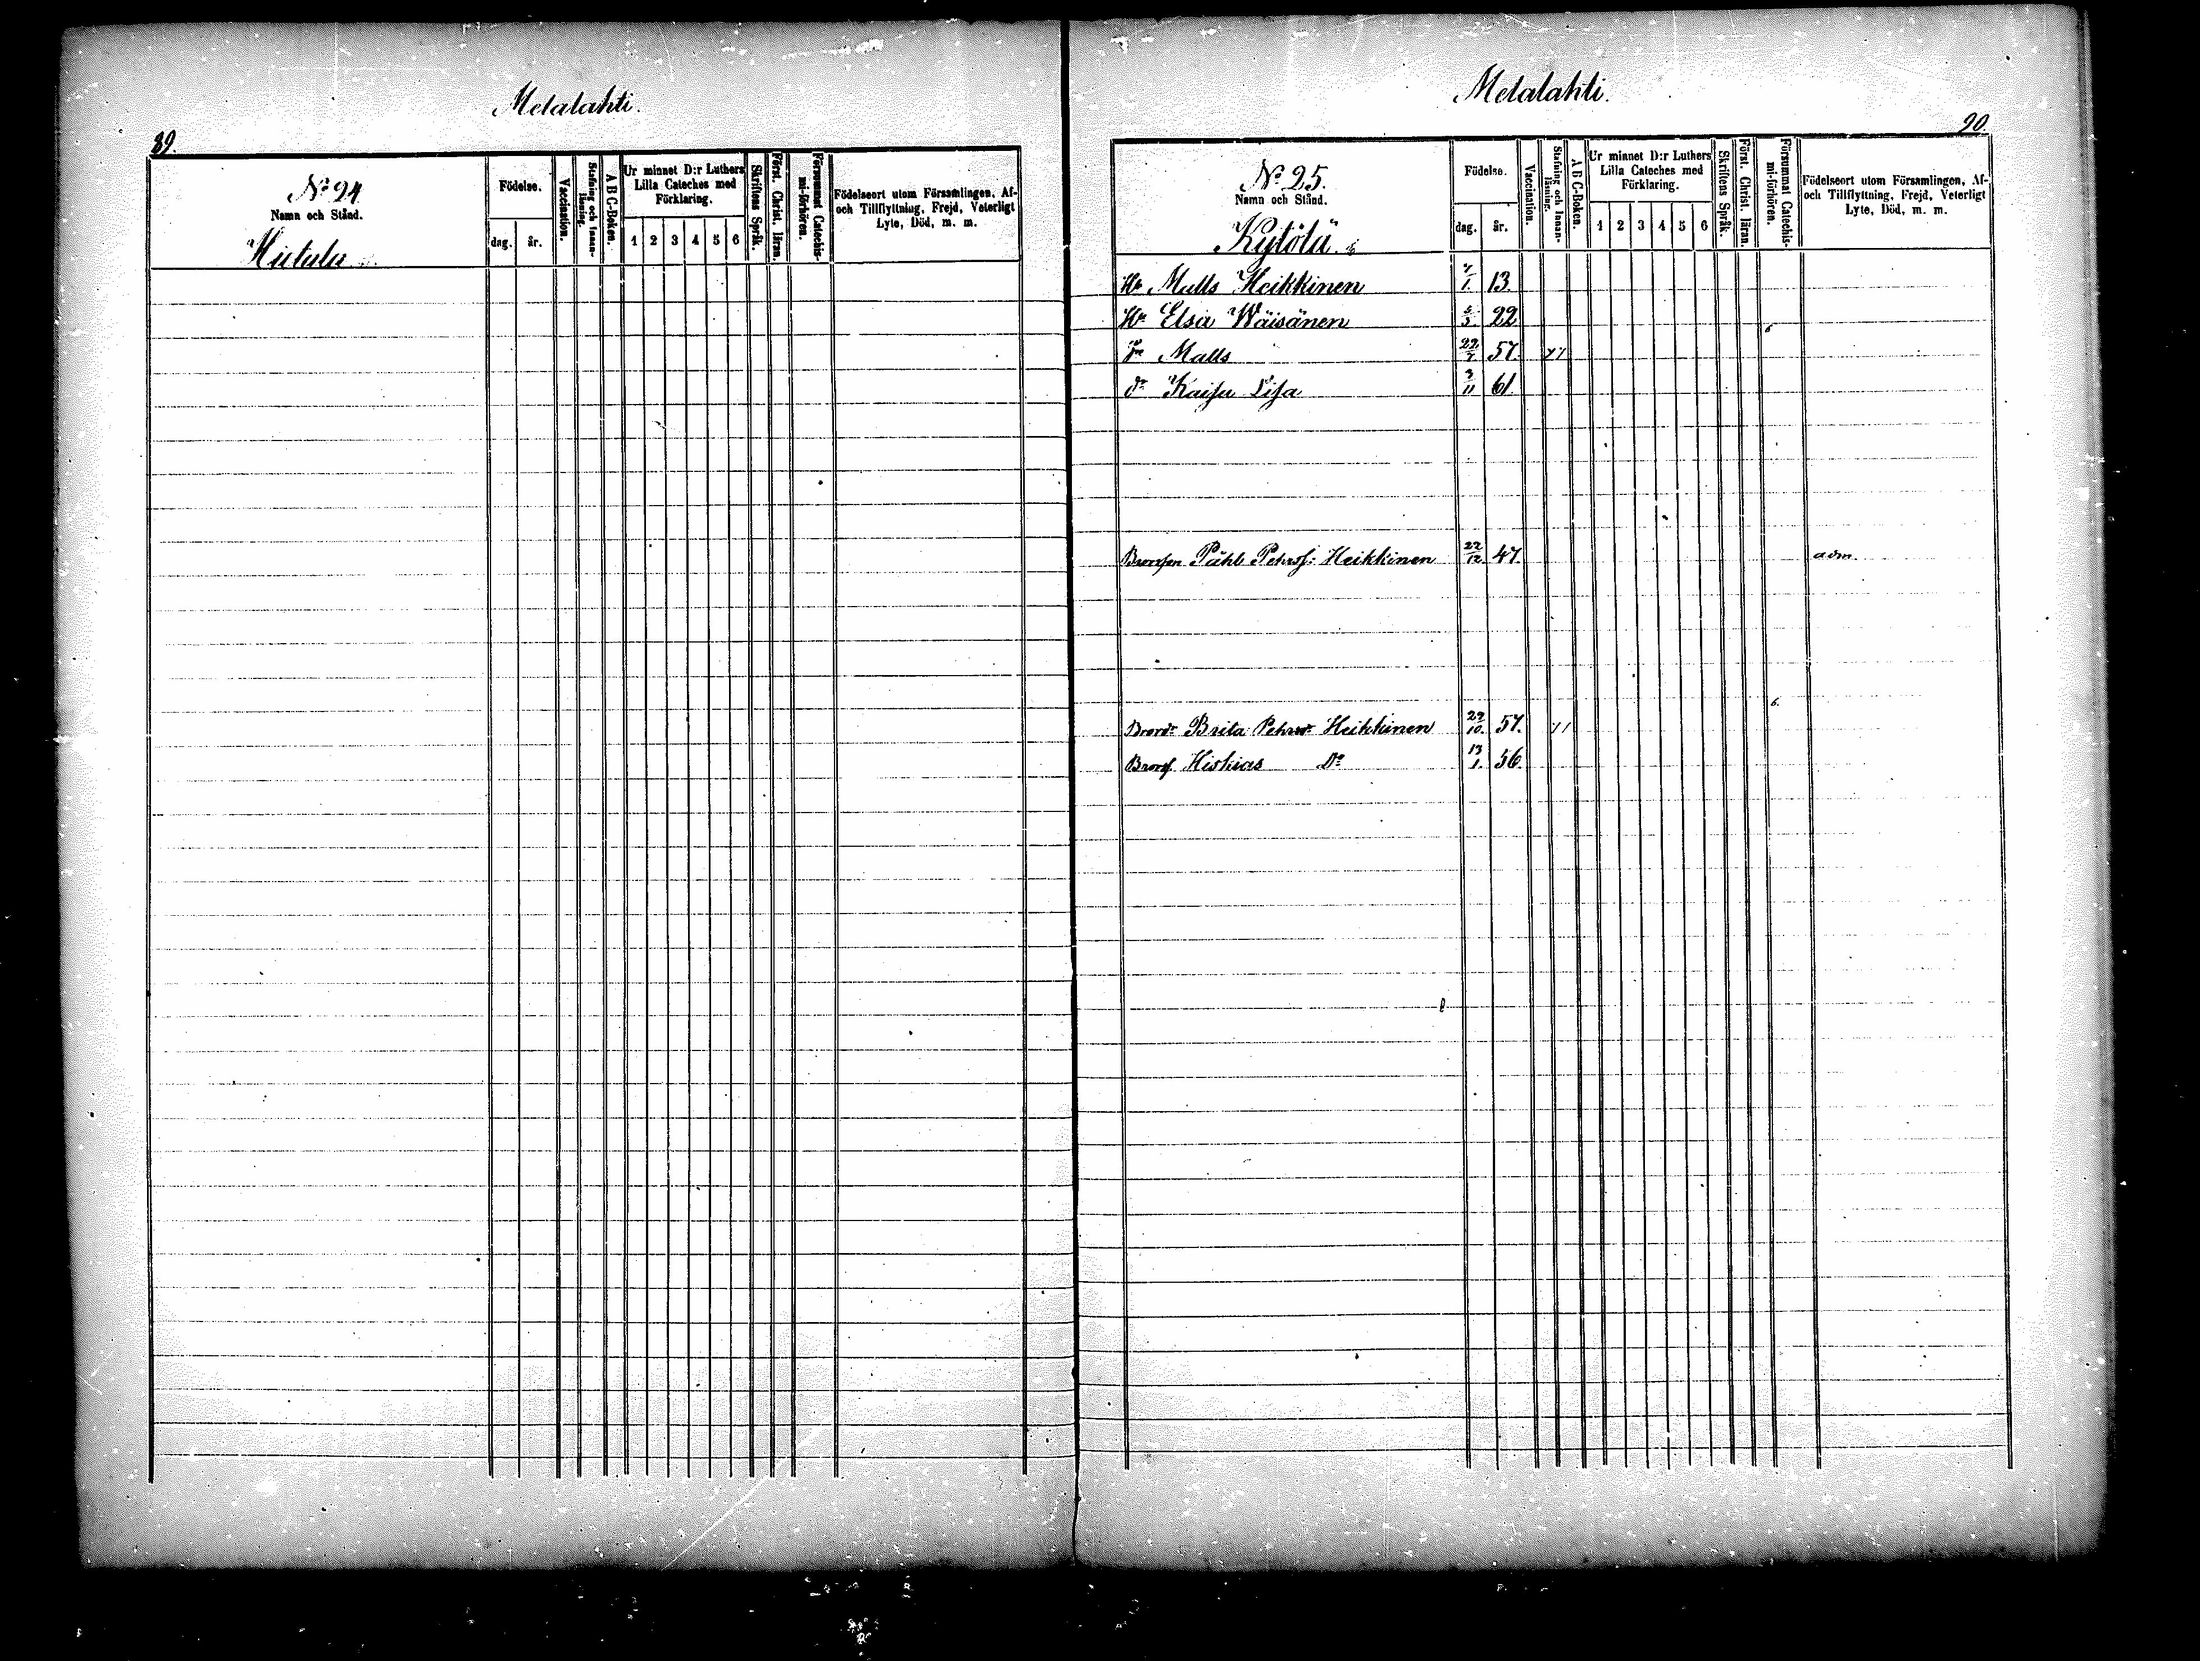 Metalahti.
89.
No 24
Namn och Stånd.
Hiitula
Födelse.
dag. år.
Vaccination.
Stafning och Innan-läsning.
A B C-Boken.
Ur minnet D:r Luthers
Lilla Cateches med
Förklaring.
1 2 3 4 5 6
Skriftens Språk.
Först. Christ. läran.
Försummat Catechis-mi-förhören.
Födelseort utom Församlingen, Af-
och Tillflyttning, Frejd, Veterligt
Lyte, Död, m. m.
Metalahti.
90.
No 25.
Namn och Stånd.
Kytölä
Födelse.
dag. år.
Vaccination.
Stafning och Innan-läsning.
A B C-Boken.
Ur minnet D:r Luthers
Lilla Cateches med
Förklaring.
1 2 3 4 5 6
Skriftens Språk.
Först. Christ. läran.
Försummat Catechis-mi-förhören.
Födelseort utom Församlingen, Af-
och Tillflyttning, Frejd, Veterligt
Lyte, Död, m. m.
Matts Heikkinen 13.
Elsa Wäisänen 22
Matts 57.
dr Kaisa Lisa 3/11 61.
Brorson Påhl Pehrss: Heikkinen 22/12 47. adm.
Brord: Brita Pehrsdr Heikkinen 29/10. 57.
Brors. Hiskias Do 13/1. 56.